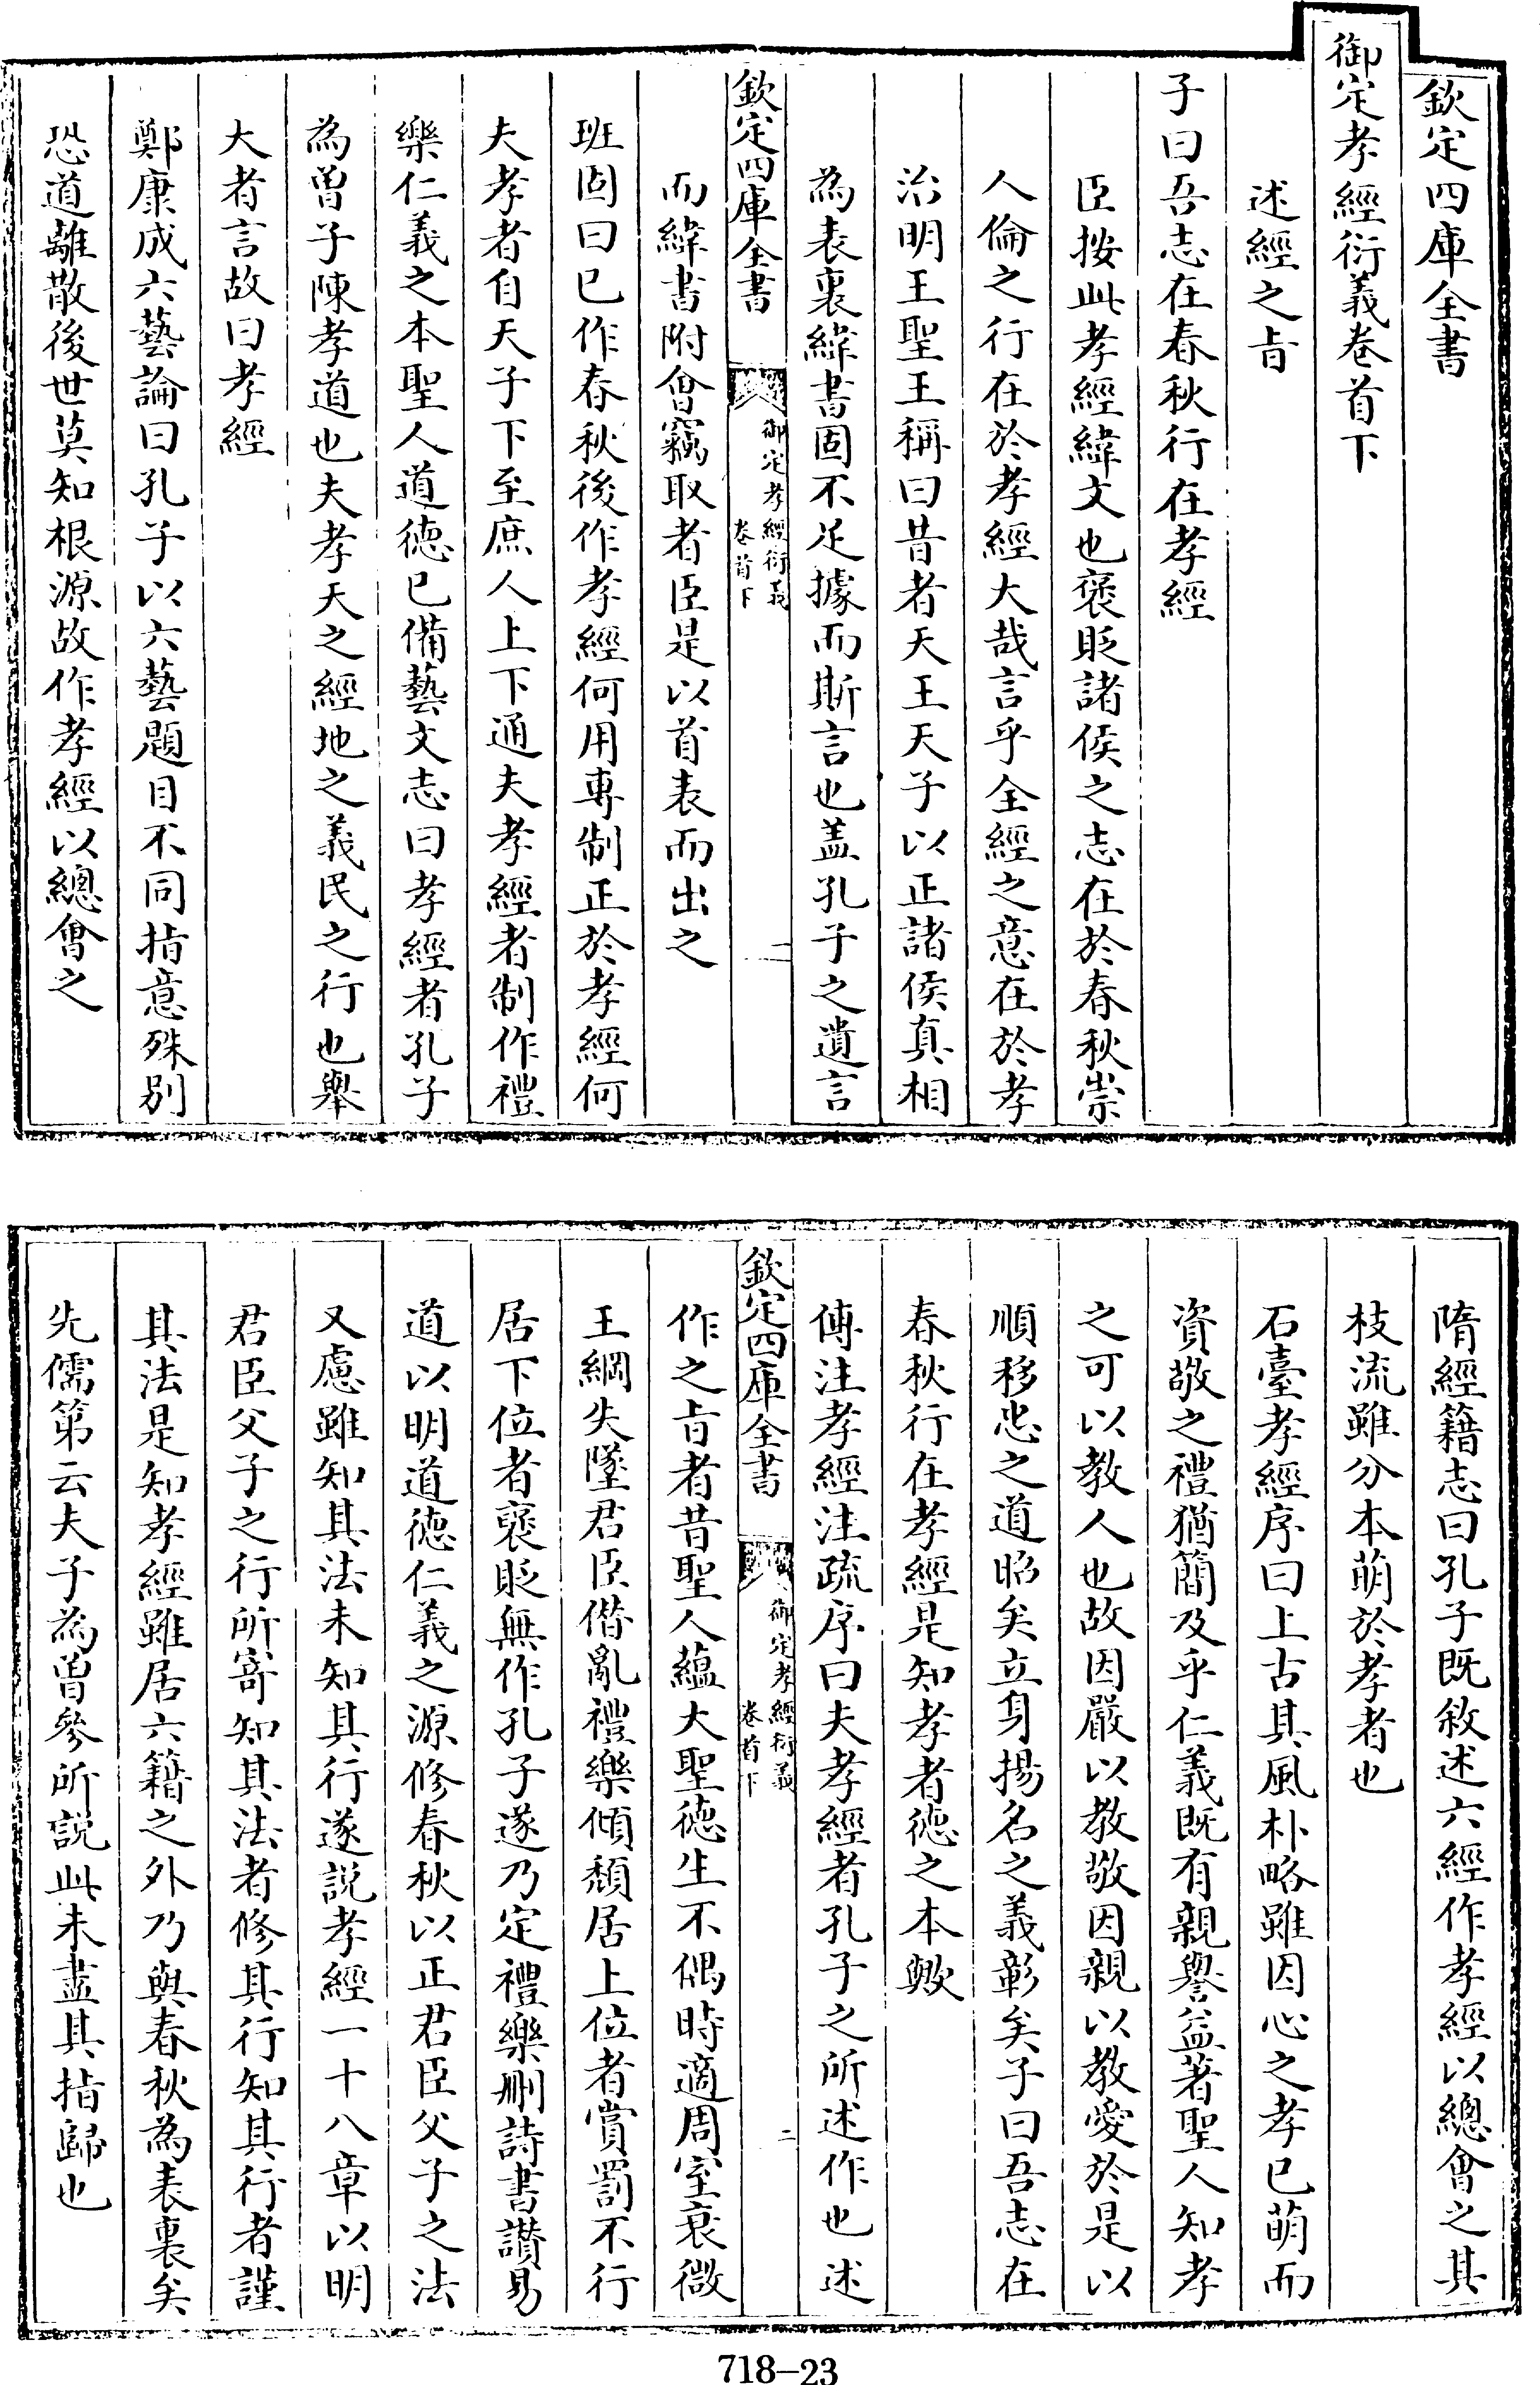 欽定四庫全書
御定孝經衍義卷首下
述經之旨
子曰吾志在春秋行在孝經
臣按此孝經緯文也褒貶諸侯之志在於春秋崇
人倫之行在於孝經大哉言乎全經之意在於孝
治明王聖王稱曰昔者天王天子以正諸侯真相
為表裏緯書固不足據而斯言也盖孔子之遺言
欽定四庫全書
御定孝經衍義
卷首下
一
而緯書附會竊取者臣是以首表而出之
班固曰已作春秋後作孝經何用專制正於孝經何
夫孝者自天子下至庶人上下通夫孝經者制作禮
樂仁義之本聖人道德已備藝文志曰孝經者孔子
為曾子陳孝道也夫孝天之經地之義民之行也舉
大者言故曰孝經
鄭康成六藝論曰孔子以六藝題目不同指意殊别
恐道離散後世莫知根源故作孝經以總會之
隋經籍志曰孔子既敘述六經作孝經以總會之其
枝流雖分本萌於孝者也
石臺孝經序曰上古其風朴略雖因心之孝已萌而
資敬之禮猶簡及乎仁義既有親譽益著聖人知孝
之可以教人也故因嚴以教敬因親以教愛於是以
順移忠之道昭矣立身揚名之義彰矣子曰吾志在
春秋行在孝經是知孝者德之本歟
傳注孝經注疏序曰夫孝經者孔子之所述作也述
欽定四庫全書
御定孝經衍義
卷首下
二
作之旨者昔聖人蘊大聖德生不偶時適周室衰微
王綱失墜君臣僭亂禮樂傾頹居上位者賞罰不行
居下位者褒貶無作孔子遂乃定禮樂刪詩書讚易
道以明道德仁義之源修春秋以正君臣父子之法
又慮雖知其法未知其行遂説孝經一十八章以明
君臣父子之行所寄知其法者修其行知其行者謹
其法是知孝經雖居六籍之外乃與春秋為表裏矣
先儒第云夫子為曾參所説此未盡其指歸也
718-23